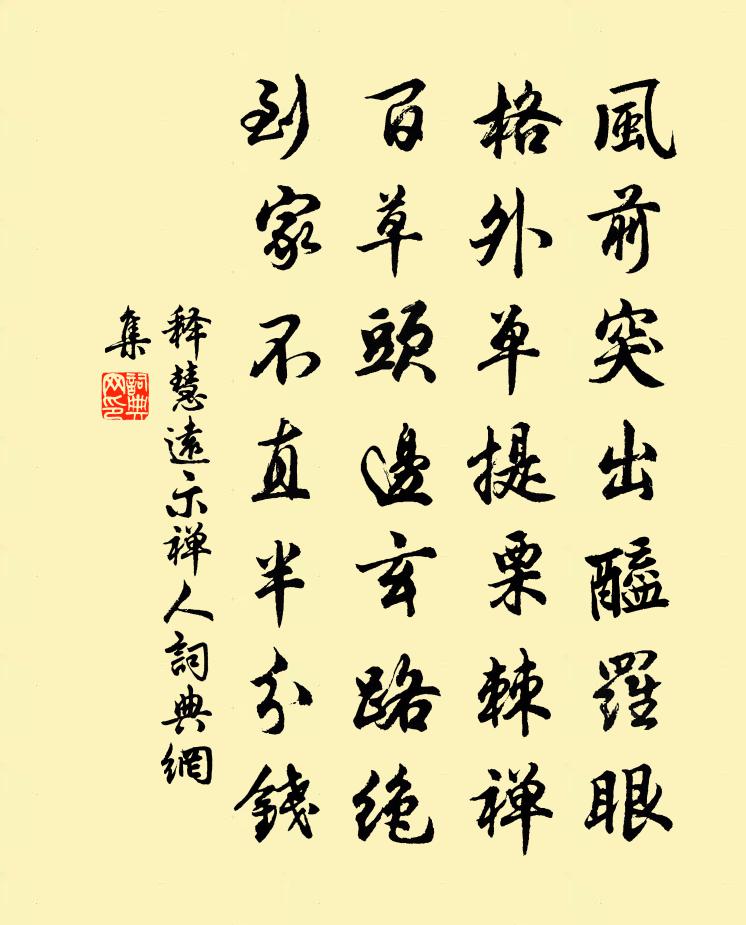 風前突出醯羅眼
格外單提栗棘禅
百草頭邊玄路绝
到家不直半分錢
释慧遠示禅人詞典網
集
詞典网印